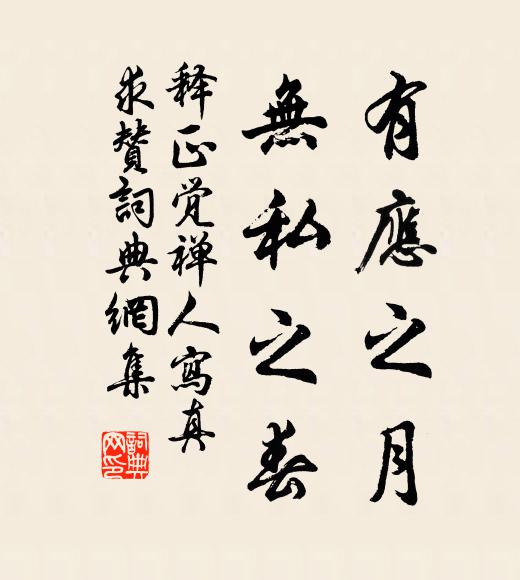 有應之月
無私之春
释正觉禅人寫真
求赞詞典網集
詞典网印